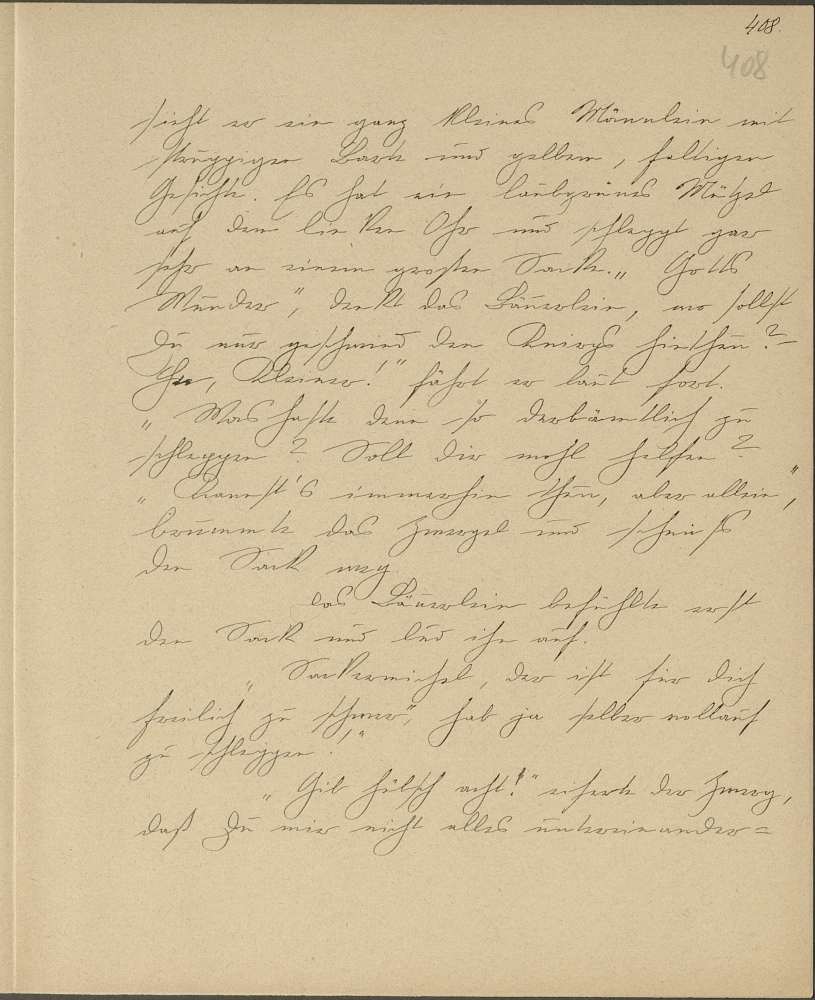 408.
408
sieht er ein ganz kleines Männlein mit
struppigen Barte und gelbem, faltigen
Gesichte. Es hat ein laubgrünes Mützel
auf dem linken Ohr und schleppt gar
sehr an einem großen Sacke. „Gotts
Wunder", denkt das Bäuerlein, wo sollst
Du nur geschwind den Knirps hinthun? –
He, Kleiner!" fährt er laut fort.
„Was haste denn so derbärmtlich zu
schleppen? Soll dir wohl helfen?
„Kannst's immerhin thun, aber allein",
brummte das Zwergel und
den Sack weg.
das Bäuerlein befühlte erst
den Sack und lud ihn auf.
„Sackermichel, der ist für dich
freilich zu schwer", hab ja selber vollauf
zu schleppen!"
„Gib hübsch acht!" eiferte der Zwerg,
daß Du mir nicht alles untereinander=